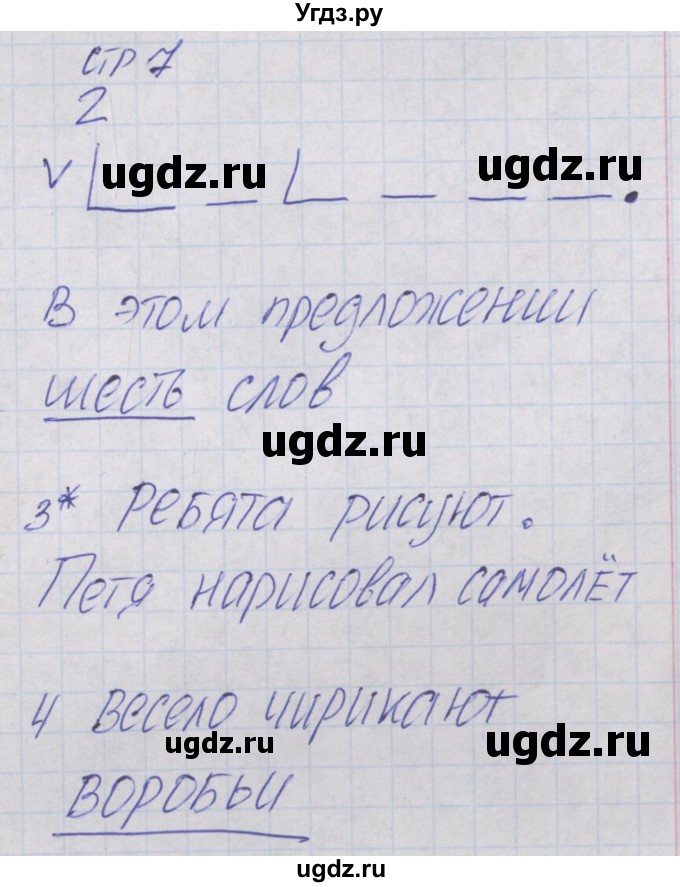 Угдз.ру
стр 7
2
V ugdz.ru ugdz.ru
В этом предложении
шесть слов
ugdz.ru
3* Ребята рисуют.
Петя нарисовал самолёт
4 Весело чирикают
ugdz.ru ugdz.ru
воробьи
ugdz.ru